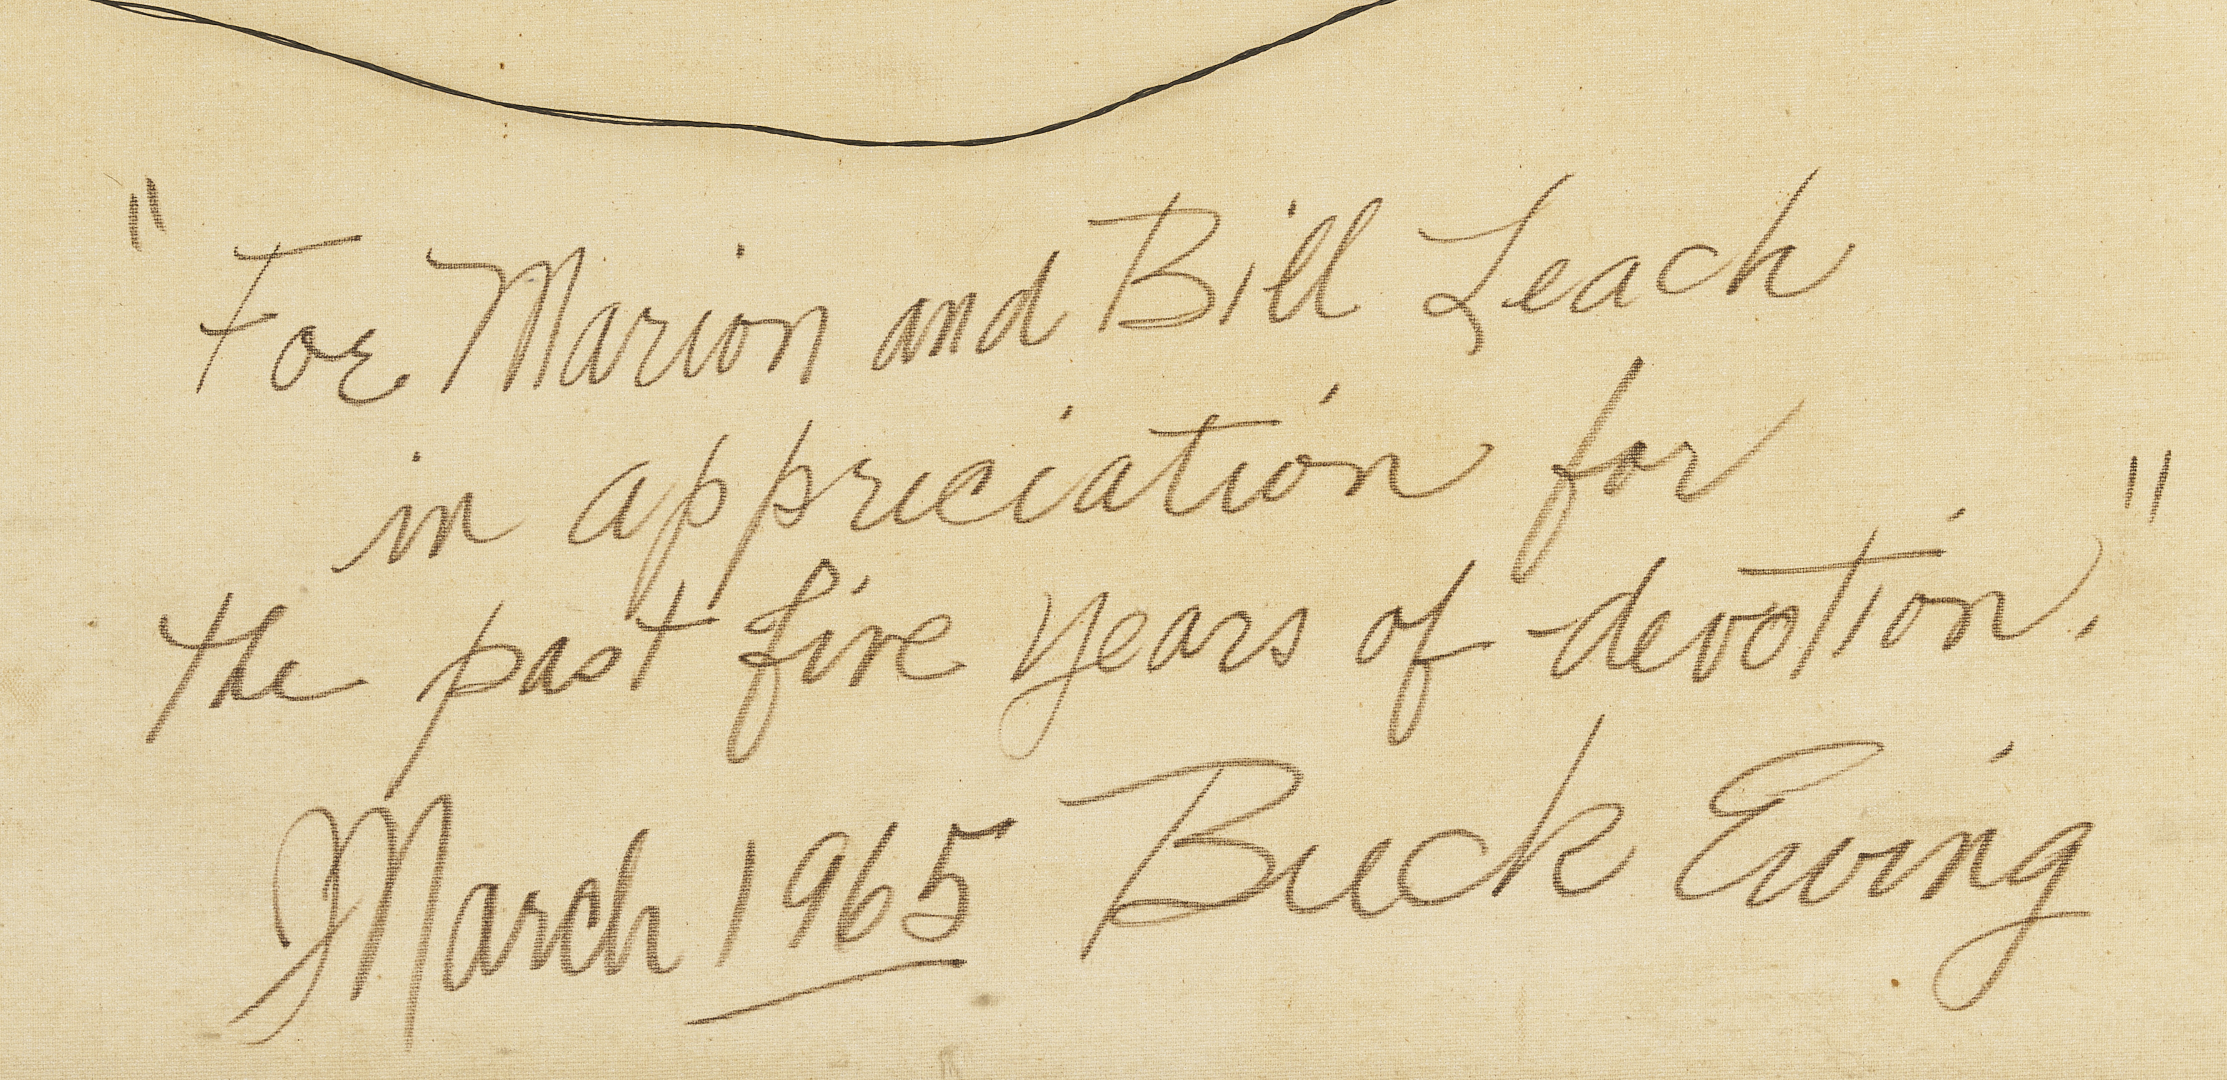 "For Marion and Bill Leach
in appreciation for
the past five years of devotion."
March 1965 Buck Ewing